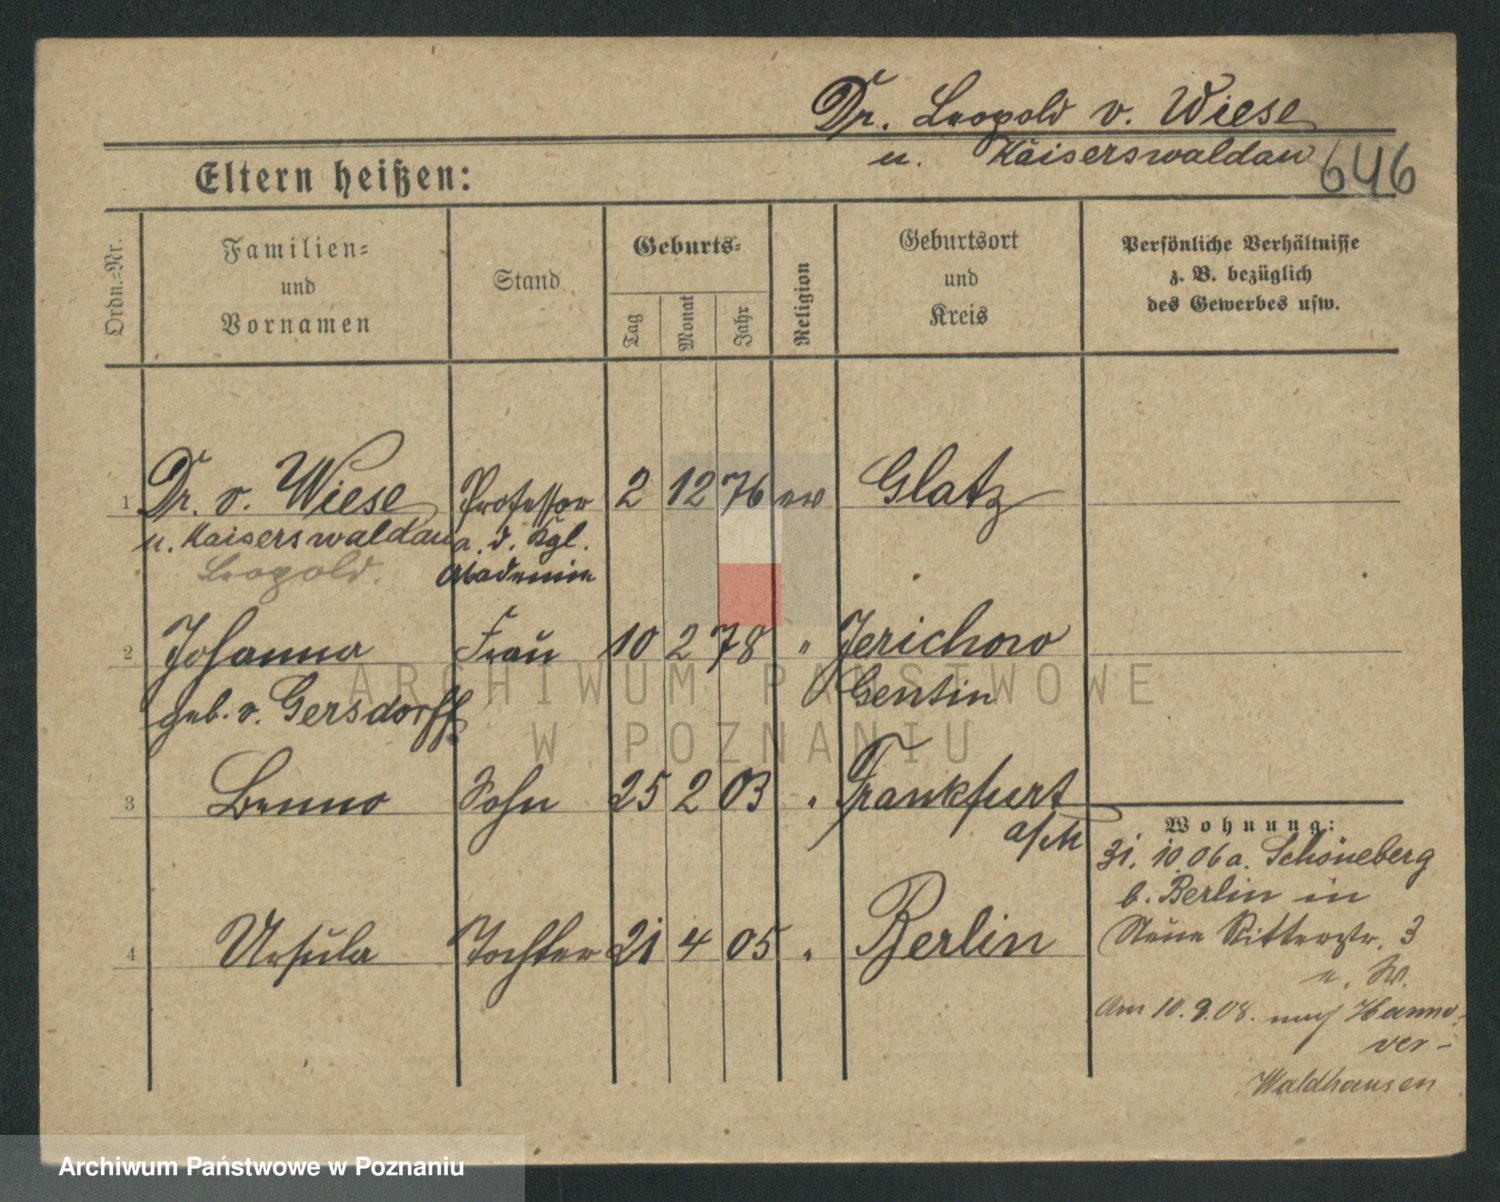 Dr. Leopold v. Wiese
u. Kaiserswaldau
646
Eltern heißen:
Ordn.-Nr.
Familien-
und
Vornamen
Stand
Geburts-
Tag
Monat
Jahr
Religion
Geburtsort
und
Kreis
Persönliche Verhältnisse
z. B. bezüglich
des Gewerbes usw.
1 Dr. v. Wiese Professor 2 12 76 ev Glatz
u. Kaiserswaldau a. d. Kgl.
Leopold. Akademie
2 Johanna Frau 10 2 78 " Jerichow
geb. v. Gersdorff Gentin
3 Benno Sohn 25 2 03 " Frankfurt
a/M
4 Ursula Tochter 21 4 05 " Berlin
Wohnung:
31. 10. 06 a. Schöneberg
b. Berlin in
Neue Ritterstr. 3
u. W.
Am 10. 9. 08. nach Hanno-
ver-
Waldhausen
ARCHIWUM PAŃSTWOWE
W POZNANIU
Archiwum Państwowe w Poznaniu